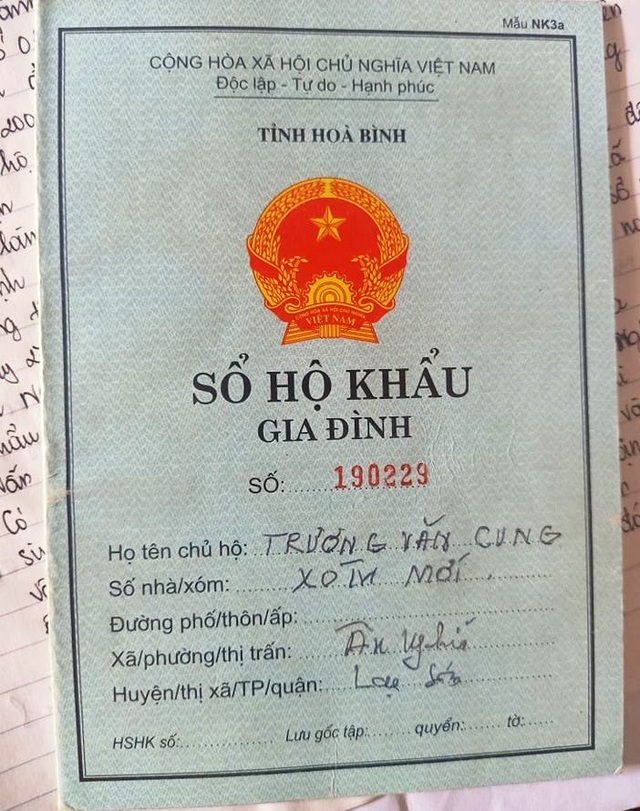 Mẫu NK3a
CỘNG HÒA XÃ HỘI CHỦ NGHĨA VIỆT NAM
Độc lập - Tự do - Hạnh phúc
TỈNH HOÀ BÌNH
CỘNG HÒA XÃ HỘI CHỦ NGHĨA
VIỆT NAM
SỔ HỘ KHẨU
GIA ĐÌNH
SỐ: 190229
Họ tên chủ hộ: TRƯƠNG VĂN CUNG
Số nhà/xóm: XÓM MỚI
Đường phố/thôn/ấp:
Xã/phường/thị trấn: Ân Nghĩa
Huyện/thị xã/TP/quận: Lạc Sơn
HSHK số: Lưu gốc tập: quyển: tờ: